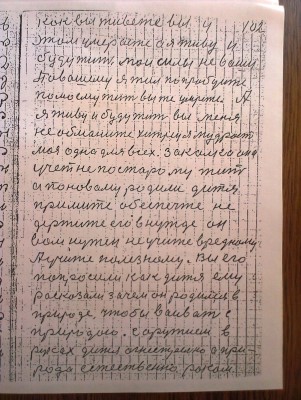 кон вы живете вы и 102
этом умераете а я живу и
будут жит мои силы не ваши
Повашему я жил попробуйте
помоему жит вы не умрете. А
я живу и будут жит вы меня
не обманите хитрия мудраст
моя одна для всех. закалка она
учет не постарому жит
а поновому родили дитя
примите обеспечте не
держите его в нужде он
вам нужен не учите вредному
А учите полезному. Вы его
попросили как дитя ему
расказали зачем он родился в
природе. чтобы ваиват с
природою. с аружием в
руках дитя огнестрелно а при-
рода естествено